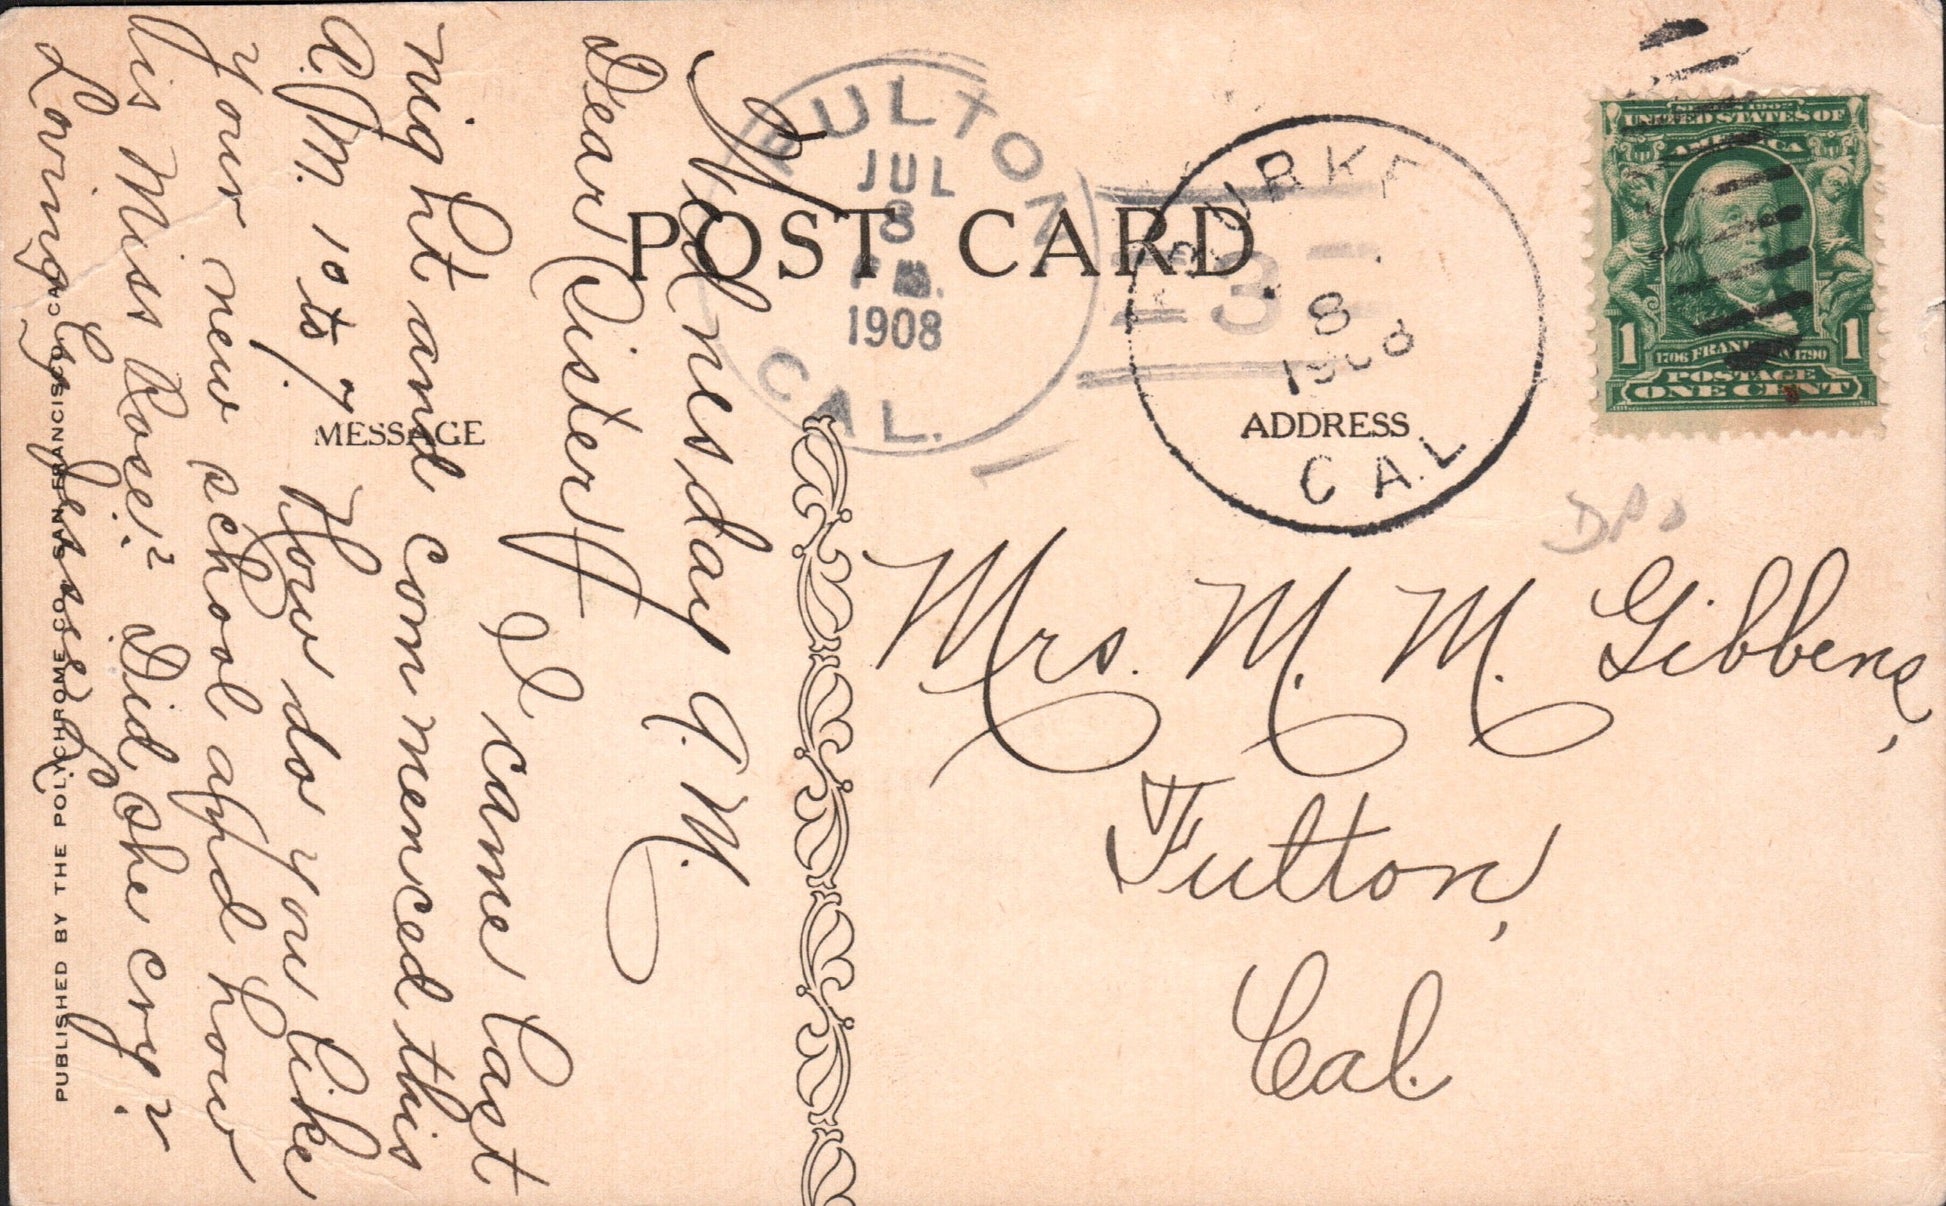 POST CARD
MESSAGE
ADDRESS
FULTON
JUL
8
1908
CAL.
3
BURKE
8
1908
CAL
SERIES 1902
UNITED STATES OF
AMERICA
1
1706 FRANKLIN 1790
1
POSTAGE
ONE CENT
Wednesday 9. M.
Dear Sister I came last
night and commenced this
A.M. 10 to 7. How do you like
your new school and how
is Miss Rose? Did she cry?
Lovingly Jessee L
Mrs. M. M. Gibbens,
Fulton,
Cal.
PUBLISHED BY THE POLYCHROME CO. SAN FRANCISCO, CAL